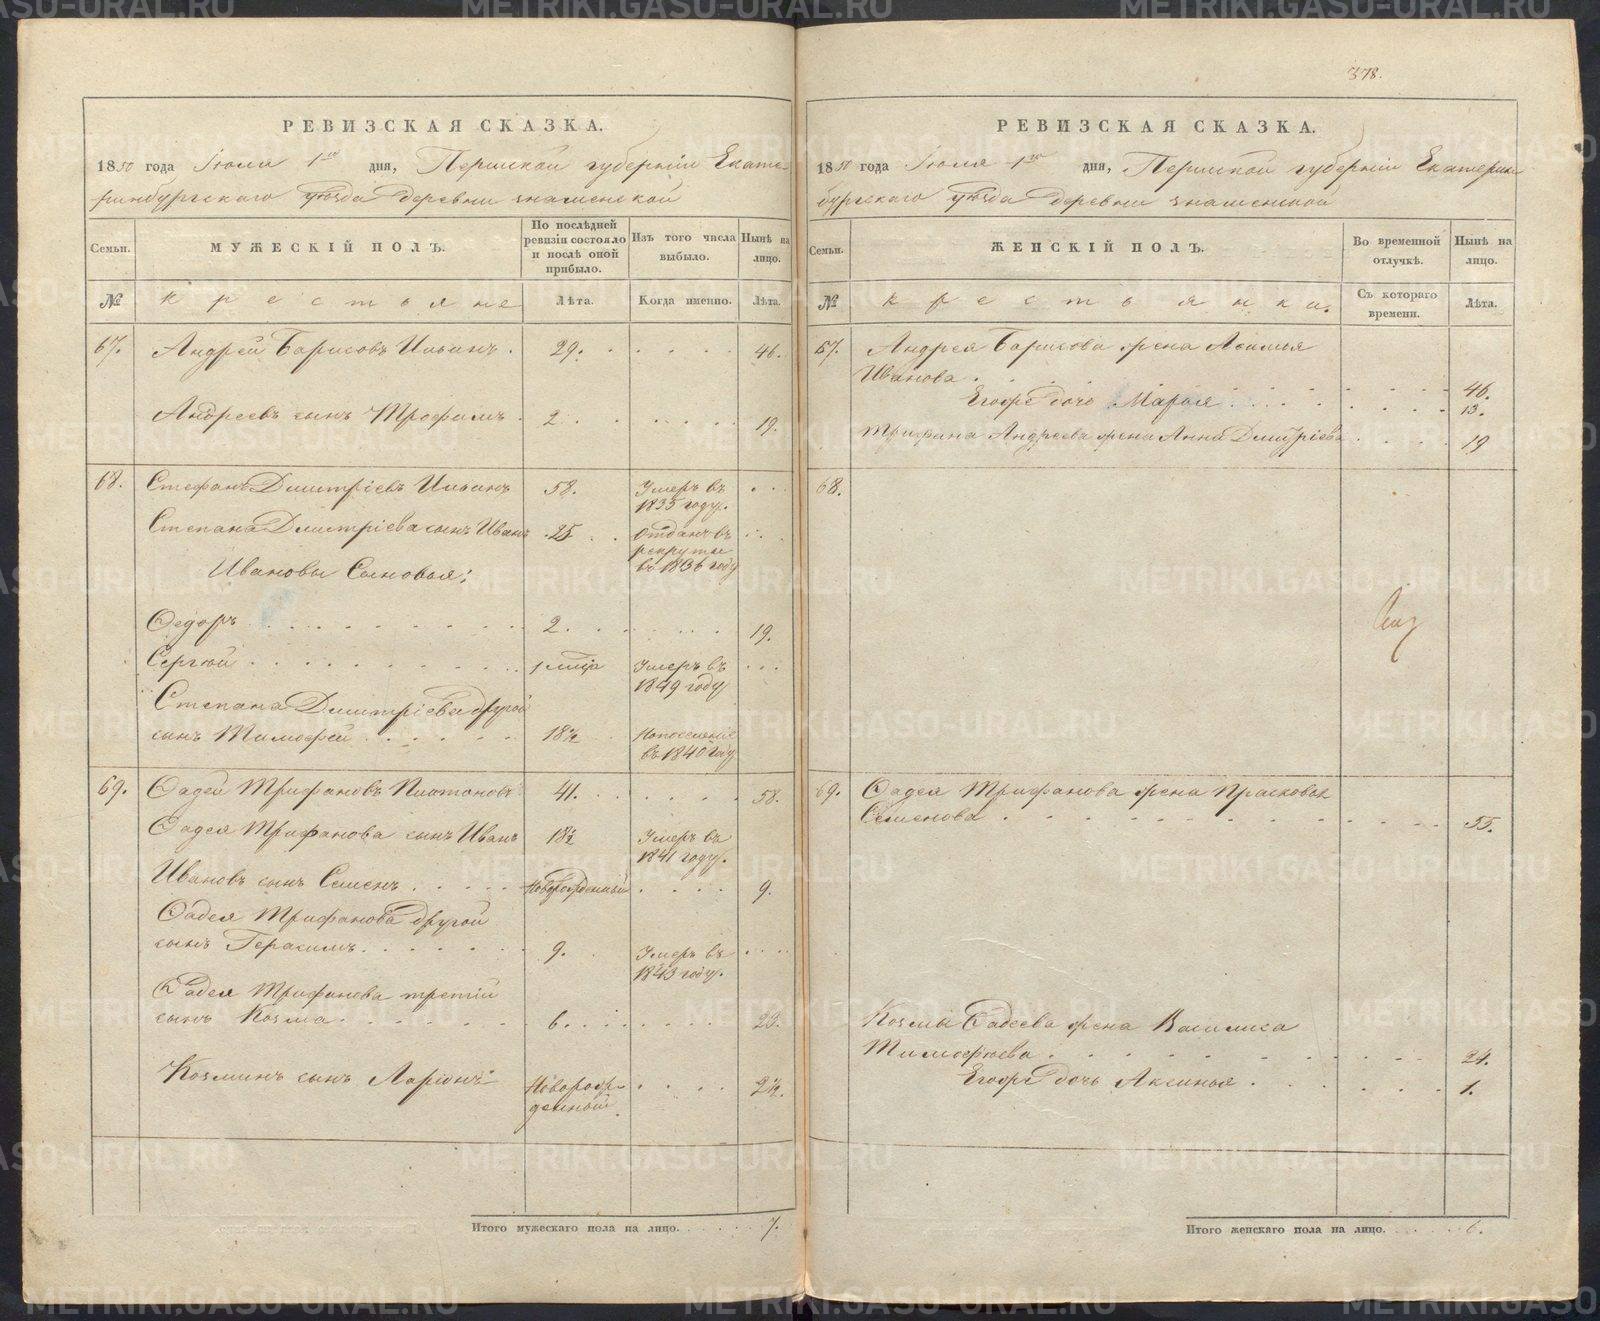 378.
РЕВИЗСКАЯ СКАЗКА.
1850 года Іюля 1го дня, Пермской губерніи Екате-
ринбургскаго уѣзда деревни знаменской
Семьи.
МУЖЕСКІЙ ПОЛЪ.
По послѣдней ревизіи состояло и послѣ оной прибыло.
Изъ того числа выбыло.
Нынѣ на лицо.
№
крестьяне
Лѣта.
Когда именно.
Лѣта.
67. Андрей Борисовъ Ильинъ. 29. 46.
Андреевъ сынъ Трофимъ. 2. 19.
68. Стефанъ Дмитріевъ Ильинъ 58. Умеръ въ
1835 году.
Степана Дмитріева сынъ Иванъ 25. Отданъ въ
рекруты
въ 1836 году
Ивановы Сыновья:
Федоръ 2. 19.
Сергѣй Умеръ въ
1849 году
Степана Дмитріева другой
сынъ Тимофей 18½ На поселеніе
въ 1840 году
69. Фадей Трифановъ Платоновъ 41. 58.
Фадея Трифанова сынъ Иванъ 18½ Умеръ въ
1841 году.
Ивановъ сынъ Семенъ Новорожденный 9.
Фадея Трифанова другой
сынъ Герасимъ 9. Умеръ въ
1843 году.
Фадея Трифанова третій
сынъ Козма 6. 23.
Козминъ сынъ Ларіонъ Новорож-
денный. 2½.
Итого мужескаго пола на лицо. 7.
РЕВИЗСКАЯ СКАЗКА.
1850 года Іюля 1го дня, Пермской губерніи Екатерин
бургскаго уѣзда деревни знаменской
Семьи.
ЖЕНСКІЙ ПОЛЪ.
Во временной отлучкѣ.
Нынѣ на лицо.
№
крестьянки.
Съ котораго времени.
Лѣта.
67. Андрея Борисова жена Акилина
Иванова 46.
Егожъ дочь Марья 13.
Трифана Андреева жена Анна Дмитріева 19
68.
69. Фадея Трифанова жена Прасковья
Семенова 55.
Козмы Фадеева жена Василиса
Тимофѣева 24.
Егожъ дочь Аксинья 1.
Итого женскаго пола на лицо. 6.
METRIKI.GASO-URAL.RU